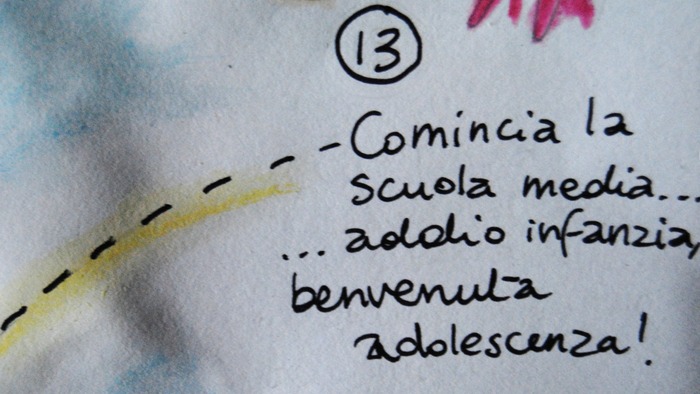 13
Comincia la
scuola media...
... addio infanzia,
benvenuta
adolescenza!